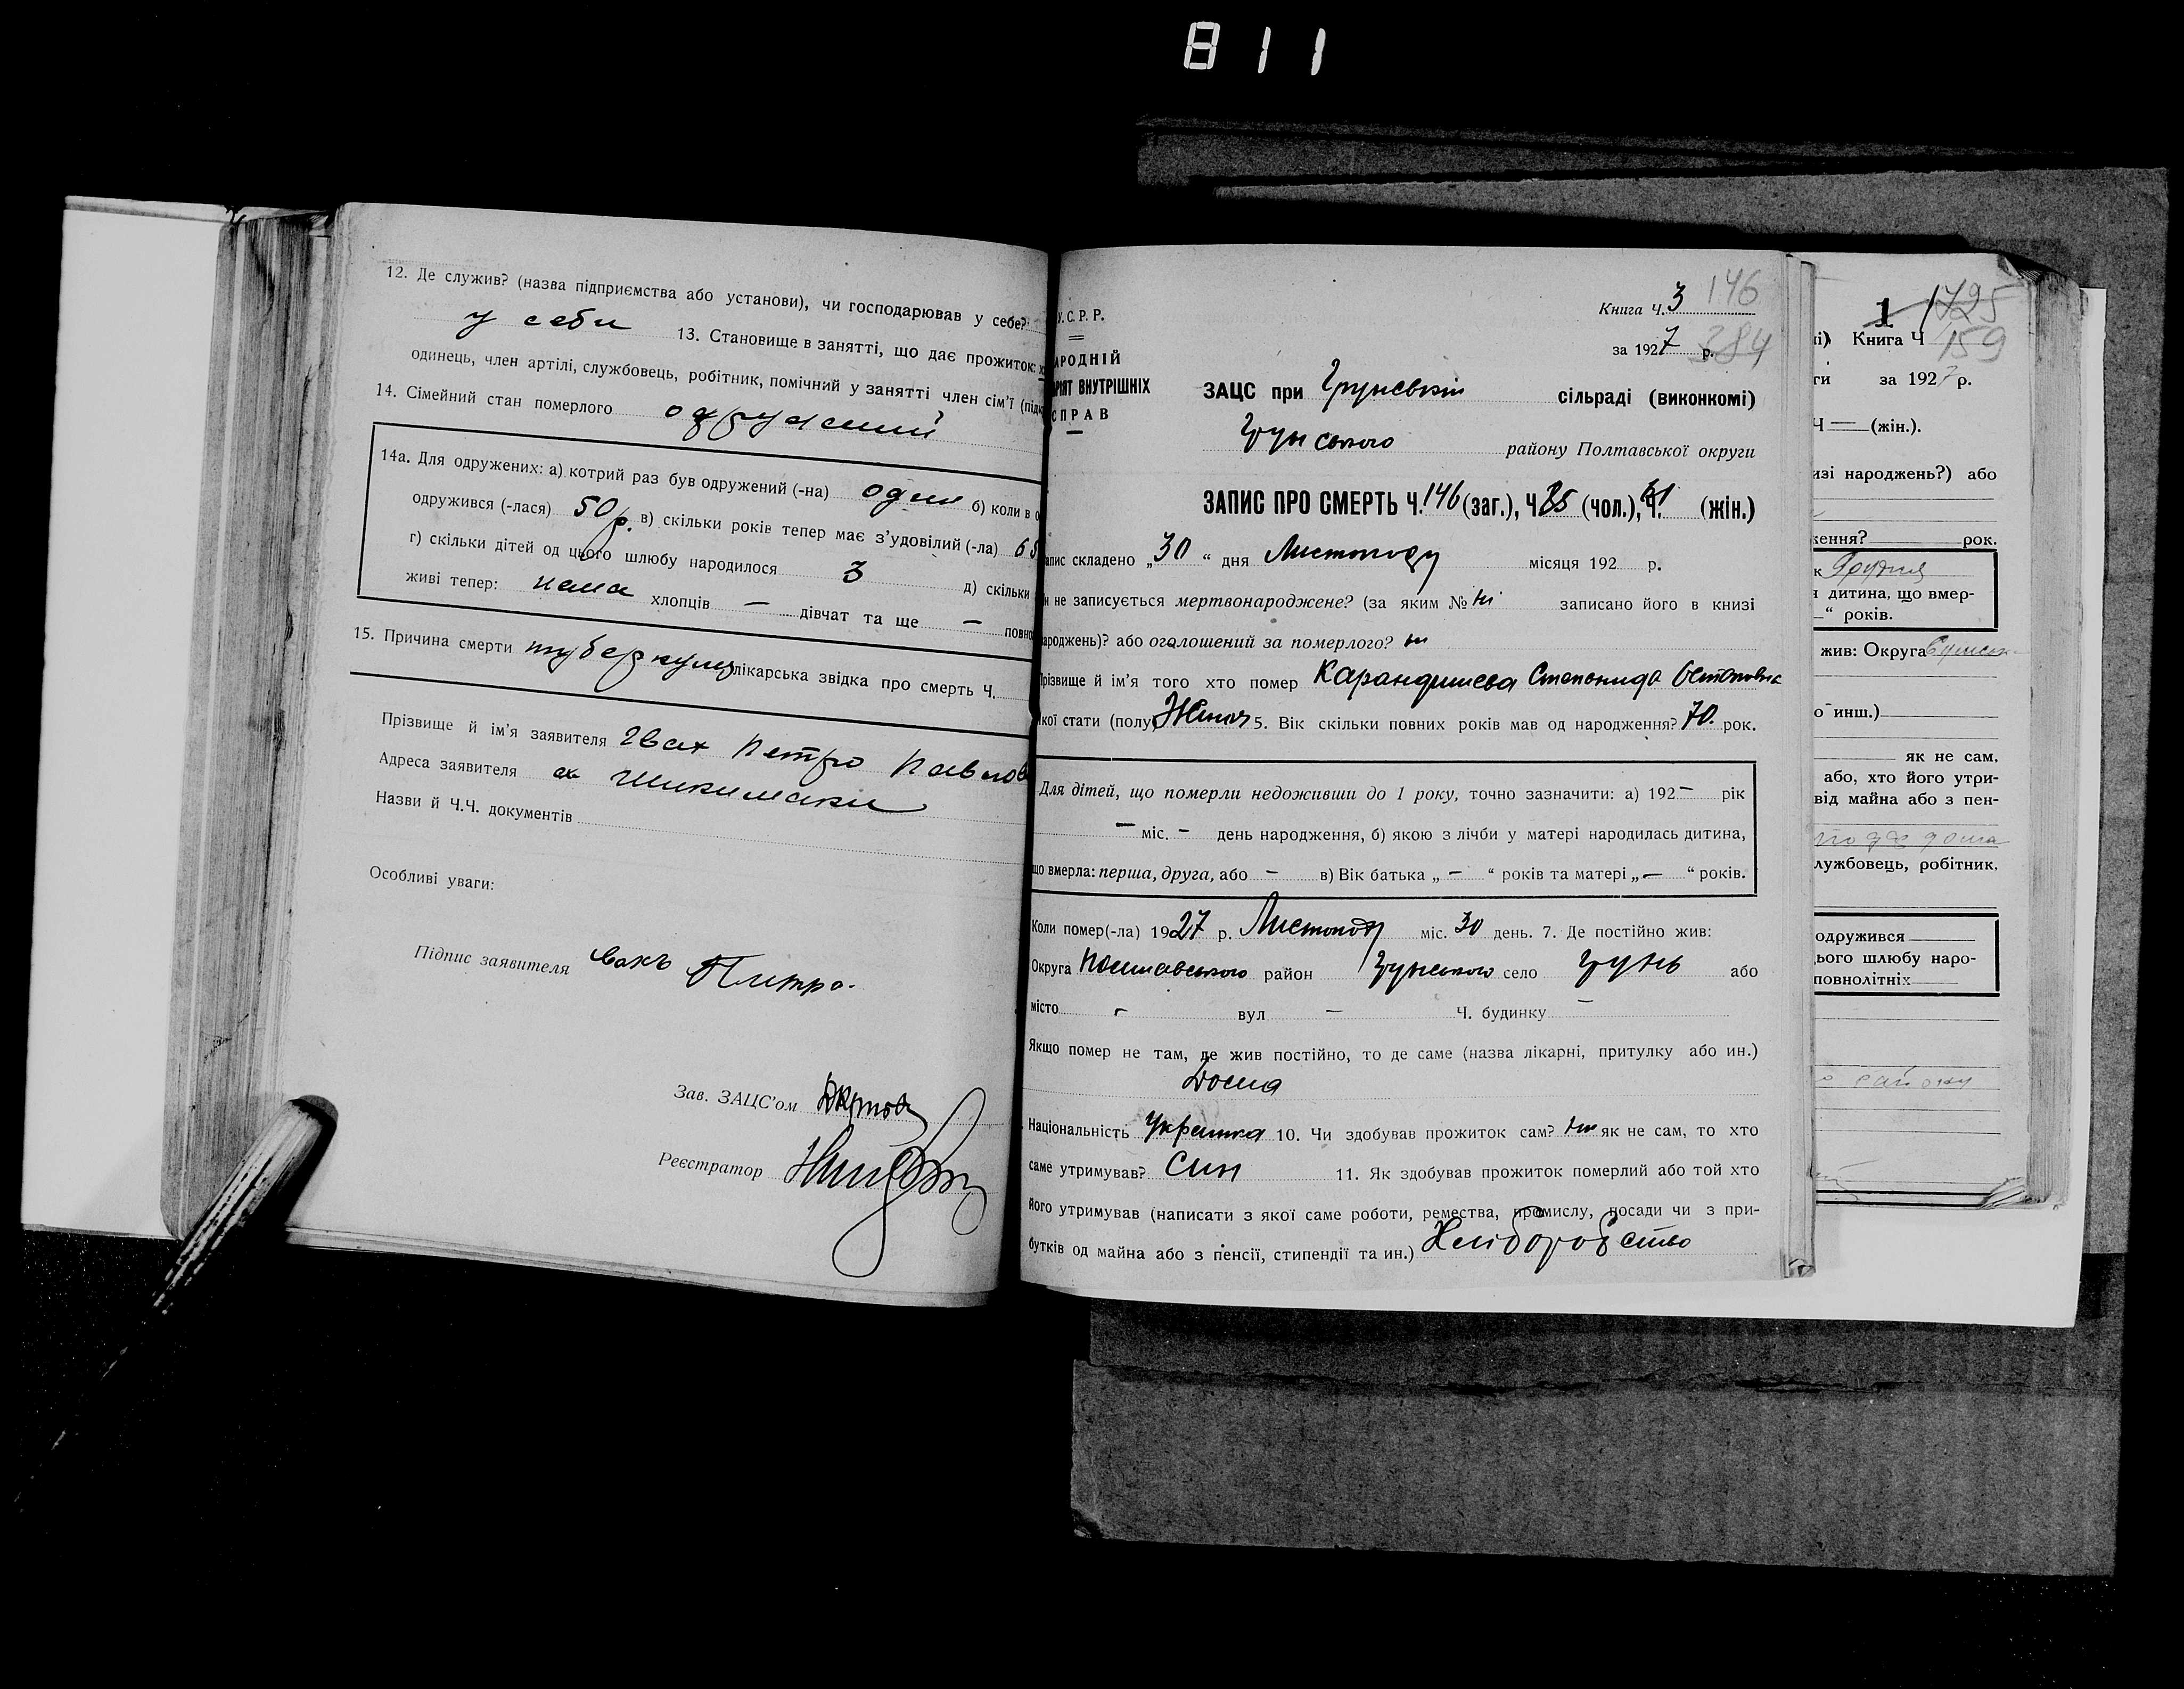 811
12. Де служив? (назва підприємства або установи), чи господарював у себе?
у себи 13. Становище в занятті, що дає прожиток:
одинець, член артілі, службовець, робітник, помічний у занятті член сім'ї (підк
14. Сімейний стан померлого одружений
14а. Для одружених: а) котрий раз був одружений (-на) один б) коли в о
одружився (-лася) 50 р. в) скільки років тепер має з'удовілий (-ла) 65
г) скільки дітей од цього шлюбу народилося 3 д) скільки
живі тепер: нема хлопців — дівчат та ще — повно
15. Причина смерти туберкулиз лікарська звідка про смерть Ч.
Прізвище й ім'я заявителя Гвах Петро Павлов
Адреса заявителя ах Шикимаки
Назви й Ч.Ч. документів
Особливі уваги:
Підпис заявителя Петро.
Зав. ЗАЦС'ом
Реєстратор
У.С.Р.Р.
АРОДНІЙ
АРІЯТ ВНУТРІШНІХ
СПРАВ
146
Книга Ч. 3
384
за 1927 р.
ЗАЦС при Грунській сільраді (виконкомі)
Грунського району Полтавської округи
ЗАПИС ПРО СМЕРТЬ Ч. 146 (заг.), Ч. 85 (чол.), Ч. 61 (жін.)
апис складено „30“ дня Листопаду місяця 192 р.
и не записується мертвонароджене? (за яким № ні записано його в книзі
ароджень)? або оголошений за померлого? ні
Прізвище й ім'я того хто помер Карандишева Степонида Остаповна
якої стати (полу) Жіноч 5. Вік скільки повних років мав од народження? 70. рок.
Для дітей, що померли недоживши до 1 року, точно зазначити: а) 192 — рік
— міс. — день народження, б) якою з лічби у матері народилась дитина,
що вмерла: перша, друга, або — в) Вік батька „ — “ років та матері „ — “ років.
Коли помер(-ла) 1927 р. Листопад міс. 30 день. 7. Де постійно жив:
Округа Полтавського район Грунського село Грунь або
місто — вул — Ч. будинку —
Якщо помер не там, де жив постійно, то де саме (назва лікарні, притулку або ин.)
Дома
Національність Украинка 10. Чи здобував прожиток сам? ні як не сам, то хто
саме утримував? син 11. Як здобував прожиток померлий або той хто
його утримував (написати з якої саме роботи, ремества, промислу, посади чи з при-
бутків од майна або з пенсії, стипендії та ин.) Хліборобство
1 1725
159
і) Книга Ч
ги за 1927 р.
Ч — (жін.).
изі народжень?) або
ження? рок.
к Грудня
я дитина, що вмер-
“ років.
жив: Округа Сумськ
о инш.)
як не сам,
або, хто його утри-
від майна або з пен-
лужбовець, робітник,
одружився
цього шлюбу наро-
повнолітніх